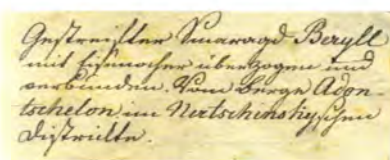 Gestreifter Smaragd Beryll
mit Eisenocher überzogen und
verbunden. Vom Berge Adon-
tschelon im Nertschinskyschen
Districkte.